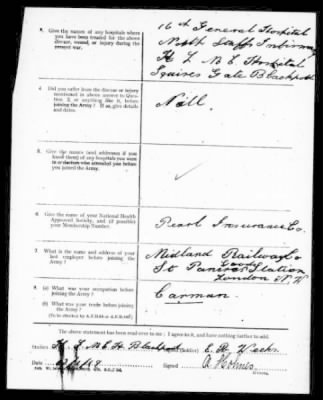 3. Give the names of any hospitals where
you have been treated for the above
disease, wound, or injury during the
present war.
16th General Hospital
North Staffs Infirmary
K L M E Hospital
Squires Gate Blackpool
4. Did you suffer from the disease or injury
mentioned in above answer to Question
2, or anything like it, before
joining the Army? If so, give details
and dates.
Nill.
5. Give the names (and addresses if you
know them) of any hospitals you went
to or doctors who attended you before
you joined the Army.
6. Give the name of your National Health
Approved Society, and (if possible)
your Membership Number.
Pearl Insurance Co.
7. What is the name and address of your
last employer before joining the
Army?
Midland Railway Co
Goods
St Pancras Station
London N.W
8. (a) What was your occupation before
joining the Army?
Carman.
(b) What was your trade before joining
the Army?
The above statement has been read over to me: I agree to it, and have nothing further to add.
Station K. L. M. E. H. Blackpool (Soldier) E. R.
Date Signed A Holmes